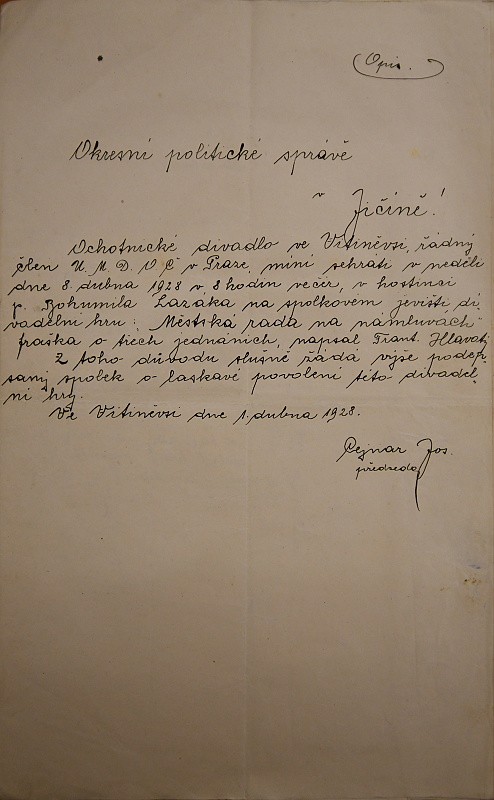 Opis.
Okresní politické správě
v Jičíně!
Ochotnické divadlo ve Vitiněvsi, řádný
člen Ú. M. D. O. Č v Praze, míní sehráti v neděli
dne 8. dubna 1928 v 8 hodin večír, v hostinci
p. Bohumila Lazáka na spolkovém jevišti di-
vadelní hru: „Městská rada na námluvách"
fraška o třech jednáních, napsal Frant. Hlavatý
Z toho důvodu slušně žádá výše podep-
saný spolek o laskavé povolení této divadel-
ní hry.
Ve Vitiněvsi dne 1. dubna 1928.
Cejnar Jos.
předseda